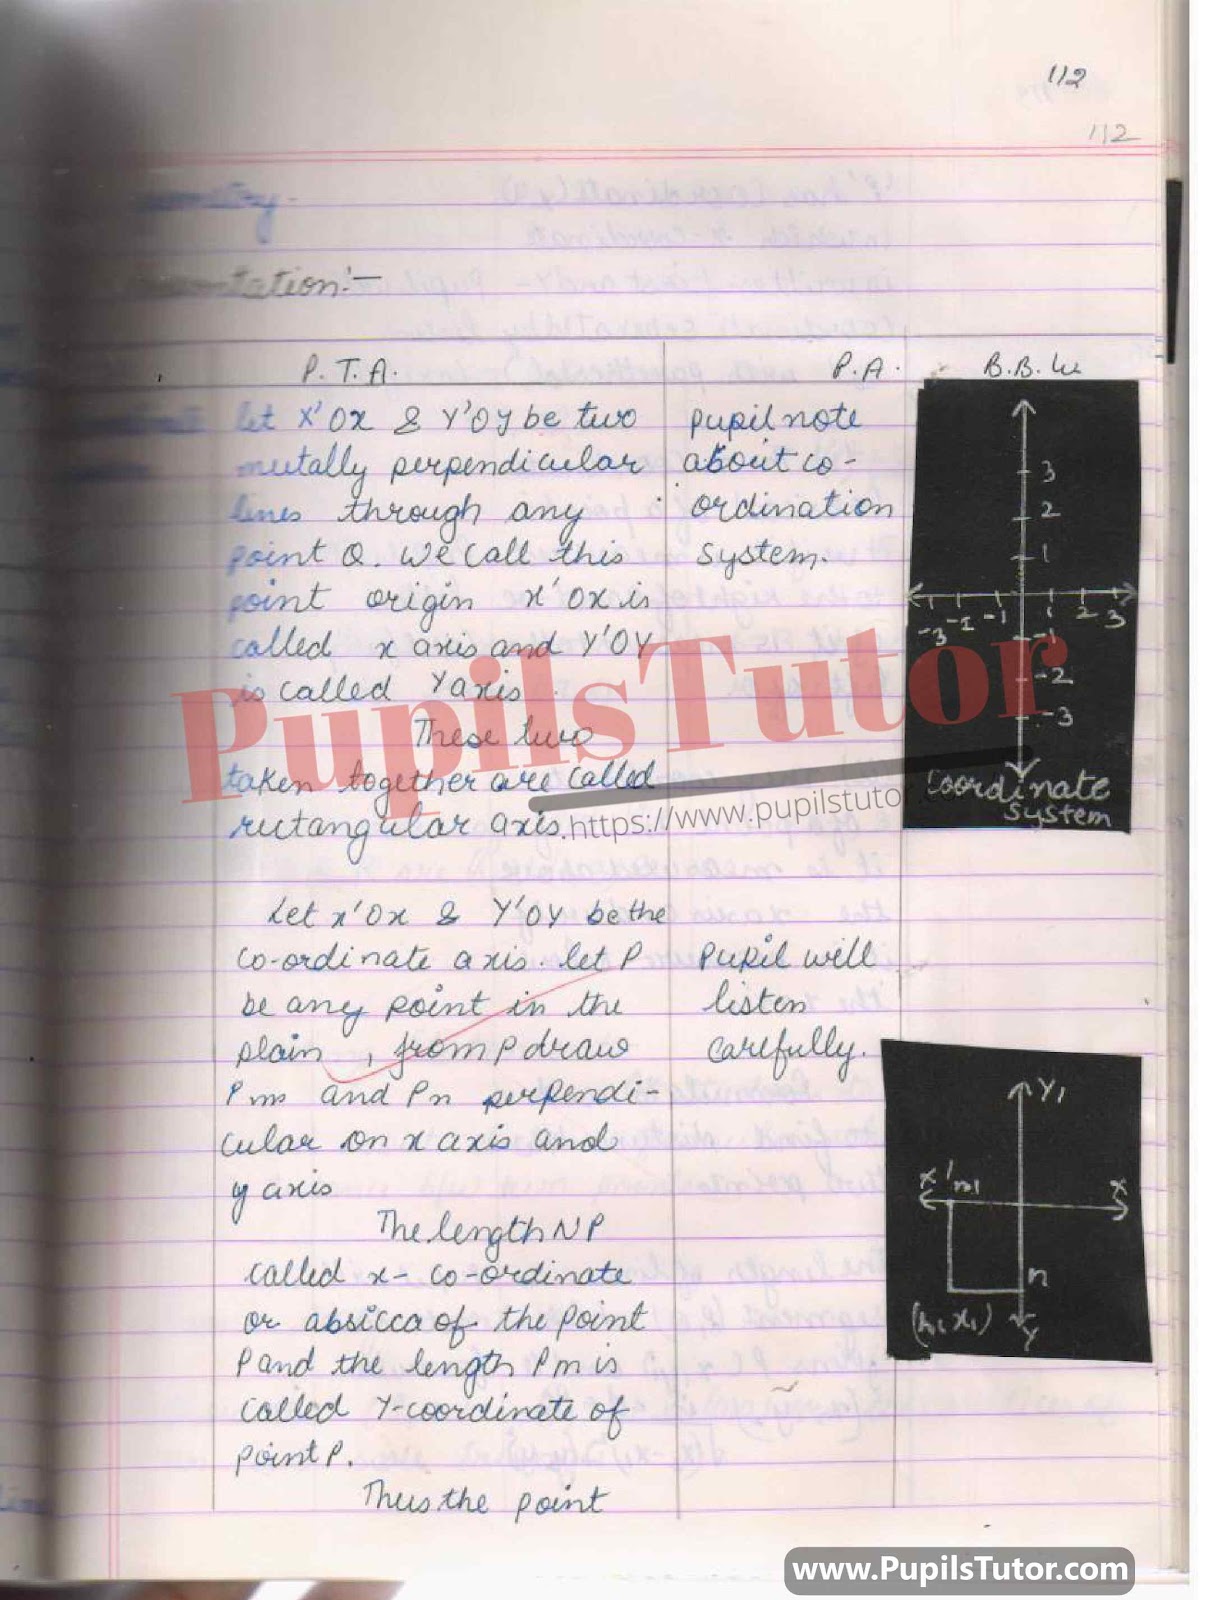 112
112
P.T.A. P.A. B.B.W
let X'OX & Y'OY be two
mutally perpendicular
lines through any
point O. We call this
point origin x'ox is
called x axis and Y'OY
is called Y axis.
These two
taken together are called
rectangular axis.
pupil note
about co-
ordination
system.
3
2
1
-3 -2 -1 1 2 3
-1
-2
-3
Coordinate
System
PupilsTutor
https://www.pupilstutor.co
Let x'Ox & Y'OY be the
co-ordinate axis. let P
be any point in the
plain, from P draw
Pm and Pn perpendi-
cular on x axis and
y axis
The length NP
called x- co-ordinate
or absicca of the point
P and the length Pm is
called Y-coordinate of
point P.
Thus the point
Pupil will
listen
carefully.
Y1
x' m1 x
n
Y
www.PupilsTutor.com